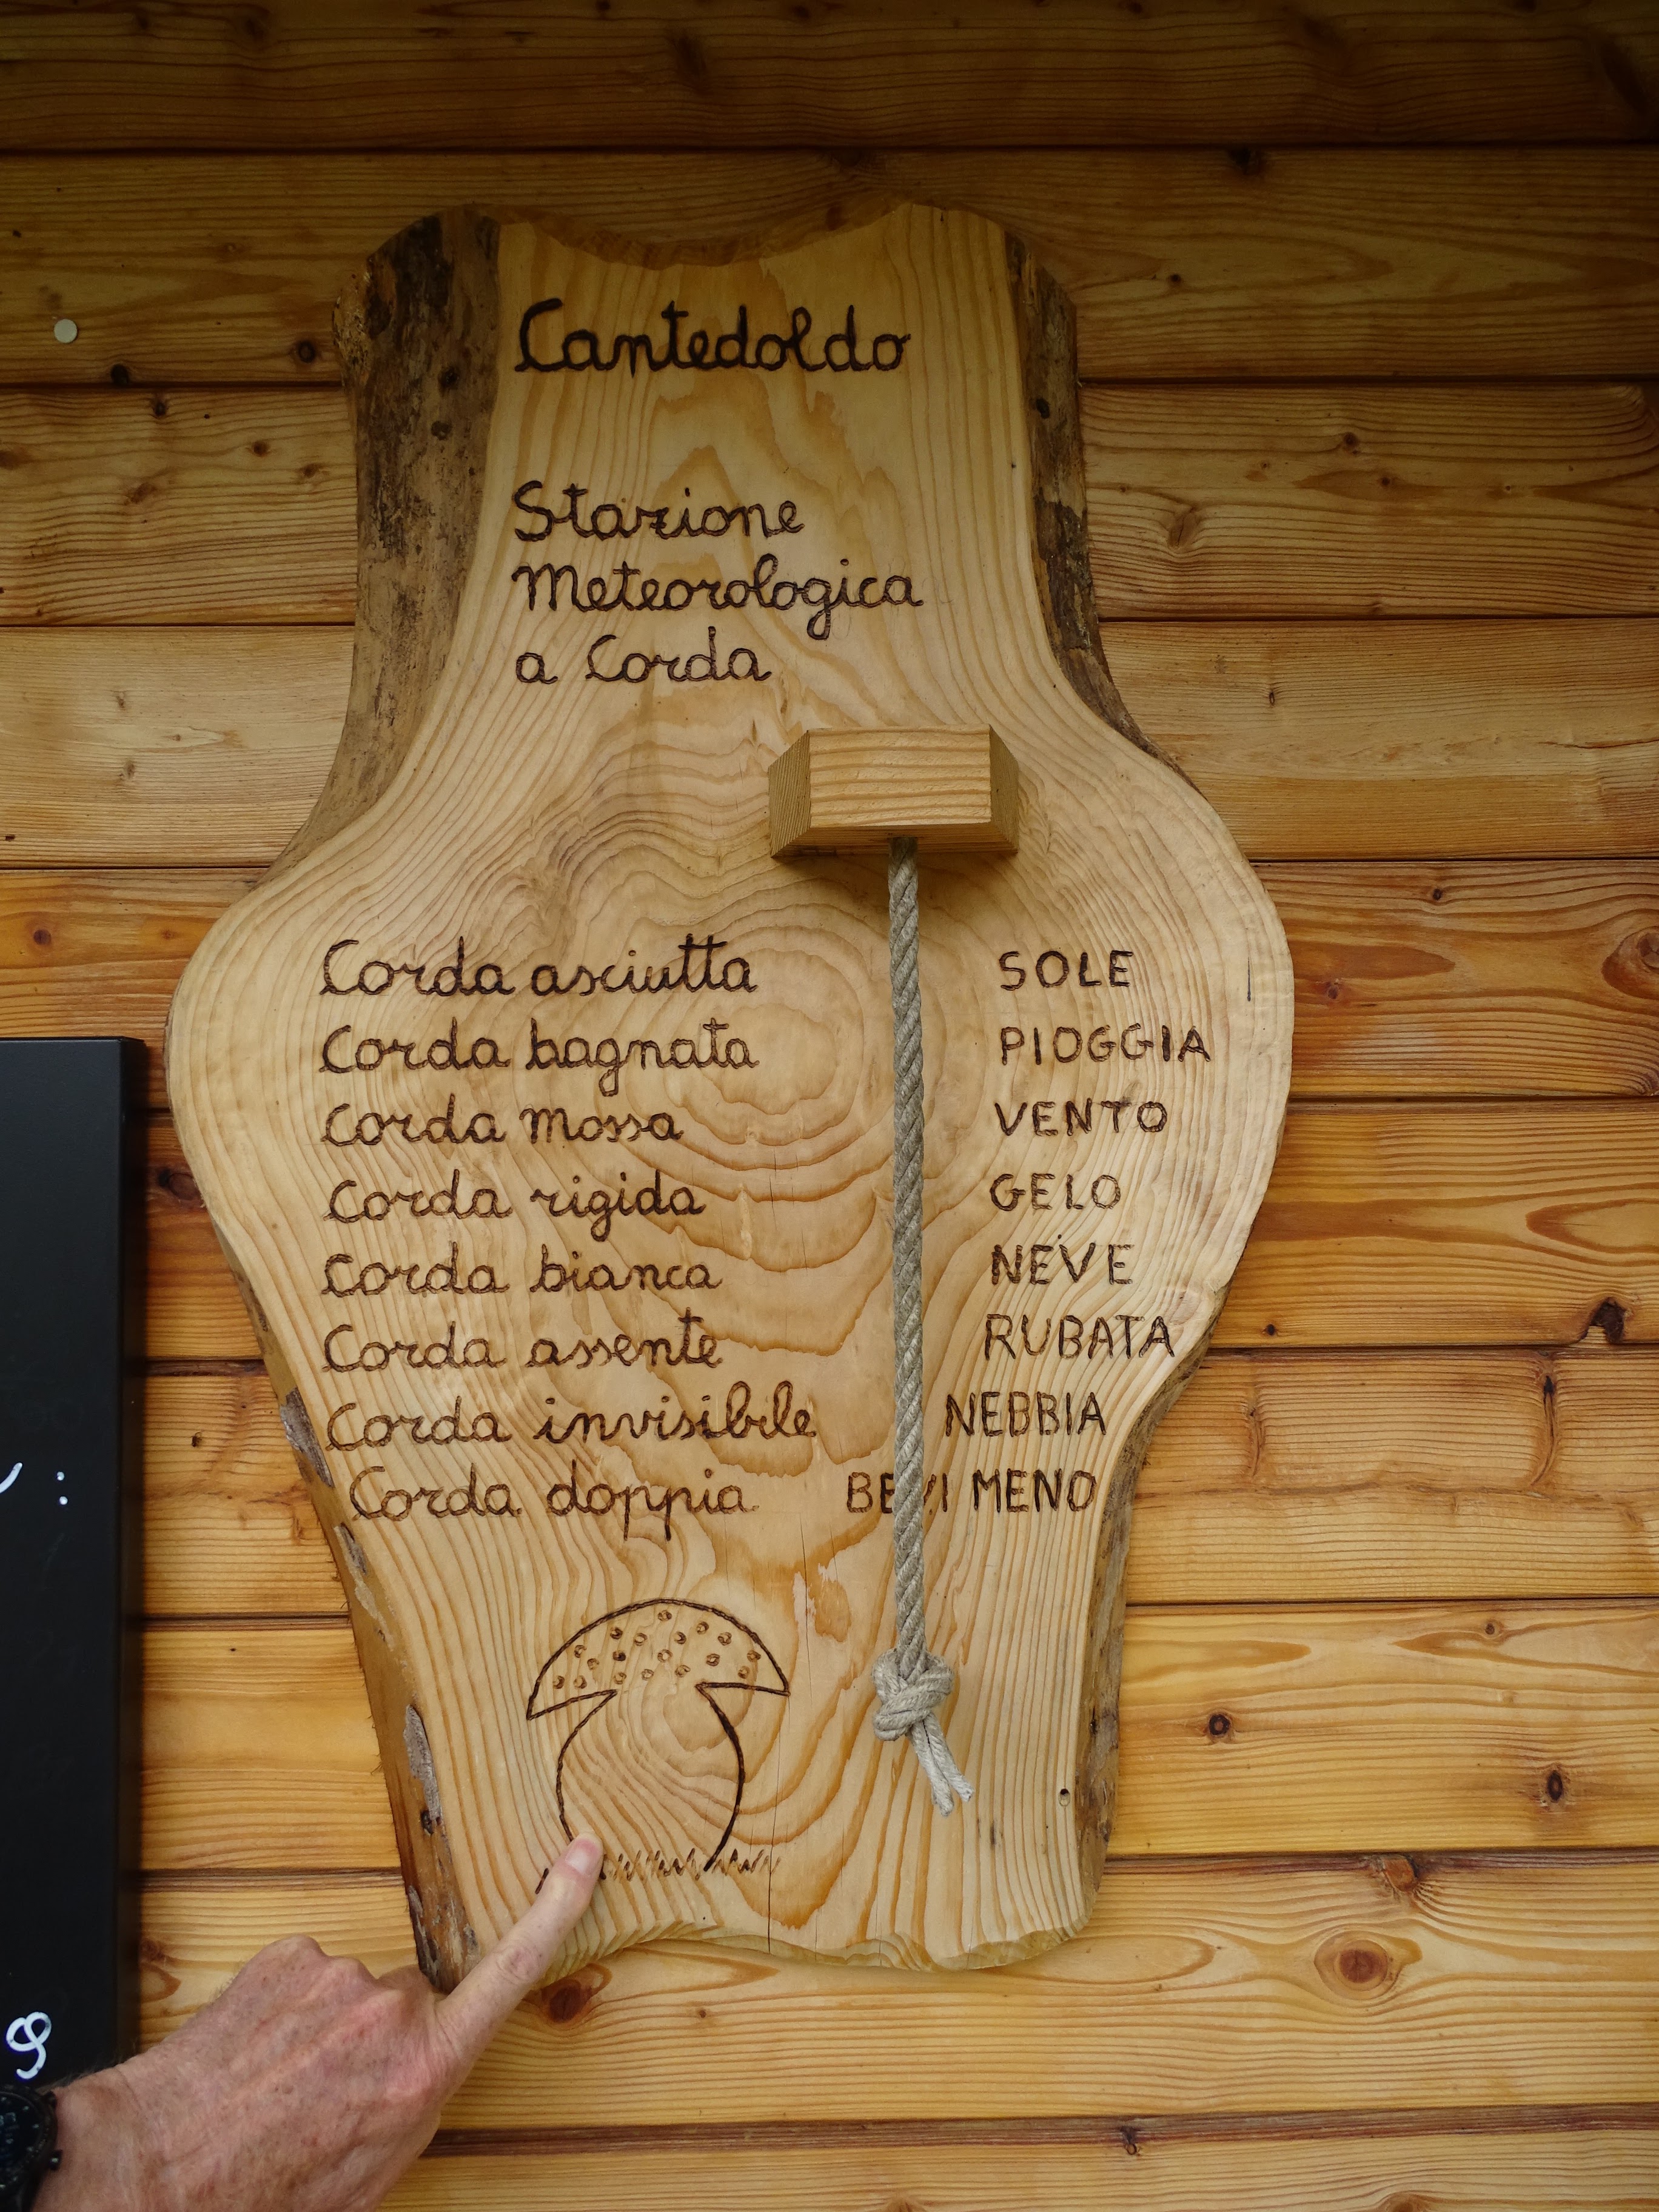 Cantedoldo
Stazione
Meteorologica
a Corda
Corda asciutta SOLE
Corda bagnata PIOGGIA
Corda mossa VENTO
Corda rigida GELO
Corda bianca NEVE
Corda assente RUBATA
Corda invisibile NEBBIA
Corda doppia BEVI MENO